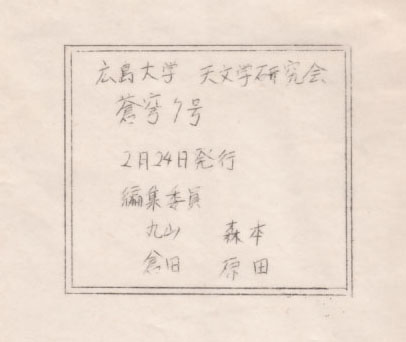 広島大学 天文学研究会
蒼穹7号
2月24日発行
編集委員
丸山 森本
倉旧 原田